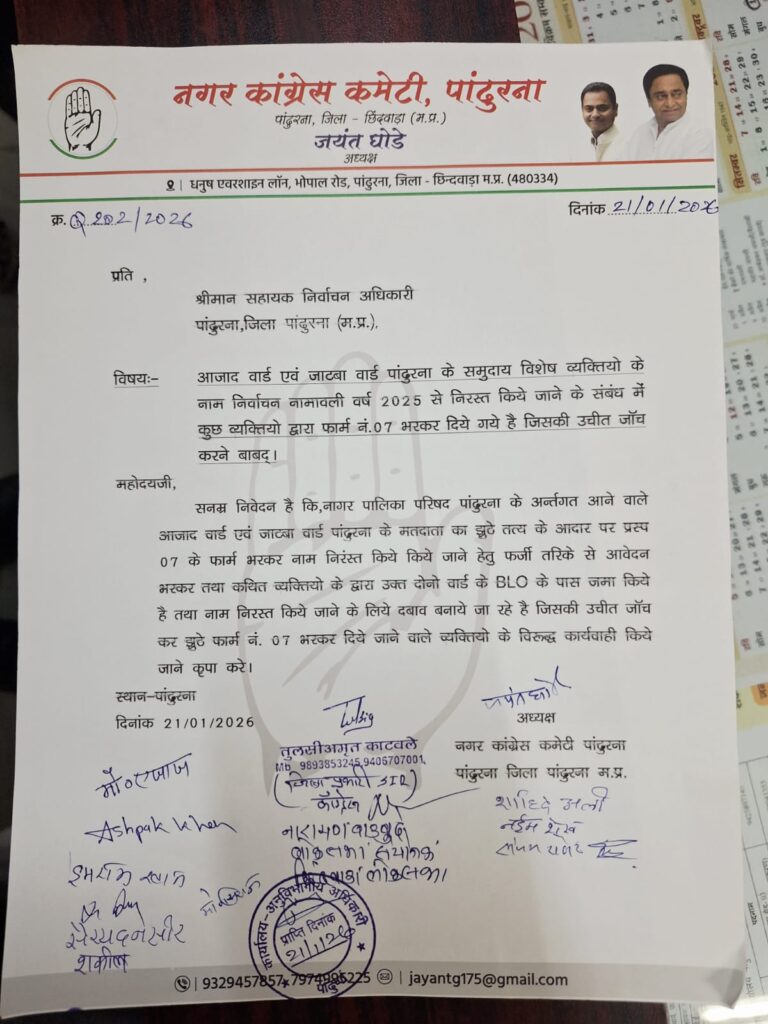 नगर कांग्रेस कमेटी, पांढुरना
पांढुरना, जिला - छिंदवाड़ा (म.प्र.)
जयंत घोडे
अध्यक्ष
| धनुष एवरशाइन लॉन, भोपाल रोड, पांढुरना, जिला - छिन्दवाड़ा म.प्र. (480334)
क्र. 202/2026
दिनांक 21/01/2026
प्रति ,
श्रीमान सहायक निर्वाचन अधिकारी
पांढुरना,जिला पांढुरना (म.प्र.).
विषयः- आजाद वार्ड एवं जाटबा वार्ड पांढुरना के समुदाय विशेष व्यक्तियो के
नाम निर्वाचन नामावली वर्ष 2025 से निरस्त किये जाने के संबंध में
कुछ व्यक्तियो द्वारा फार्म नं.07 भरकर दिये गये है जिसकी उचीत जॉच
करने बाबद्।
महोदयजी,
सनम्र निवेदन है कि,नागर पालिका परिषद पांढुरना के अर्न्तगत आने वाले
आजाद वार्ड एवं जाटबा वार्ड पांढुरना के मतदाता का झुटे तत्य के आदार पर प्रस्प
07 के फार्म भरकर नाम निरंस्त किये किये जाने हेतु फर्जी तरिके से आवेदन
भरकर तथा कथित व्यक्तियो के द्वारा उक्त दोनो वार्ड के BLO के पास जमा किये
है तथा नाम निरस्त किये जाने के लिये दबाव बनाये जा रहे है जिसकी उचीत जॉच
कर झुटे फार्म नं. 07 भरकर दिये जाने वाले व्यक्तियो के विरूद्ध कार्यवाही किये
जाने कृपा करे।
स्थान-पांढुरना
दिनांक 21/01/2026
अध्यक्ष
नगर कांग्रेस कमेटी पांढुरना
पांढुरना जिला पांढुरना म.प्र.
तुलसीअमृत काटवले
Mb. 9893853245,9406707001,
(जिला प्रभारी SIR)
कॉंग्रेस
मो० एजाज
Ashpak Khan
इमरान खान
सैय्यद नसीर
शकील
शाहिद अली
नईम शेख
कार्यालय-अनुविभागीय अधिकारी
प्राप्ति दिनांक
| 9329457857, 7974995225 | jayantg175@gmail.com